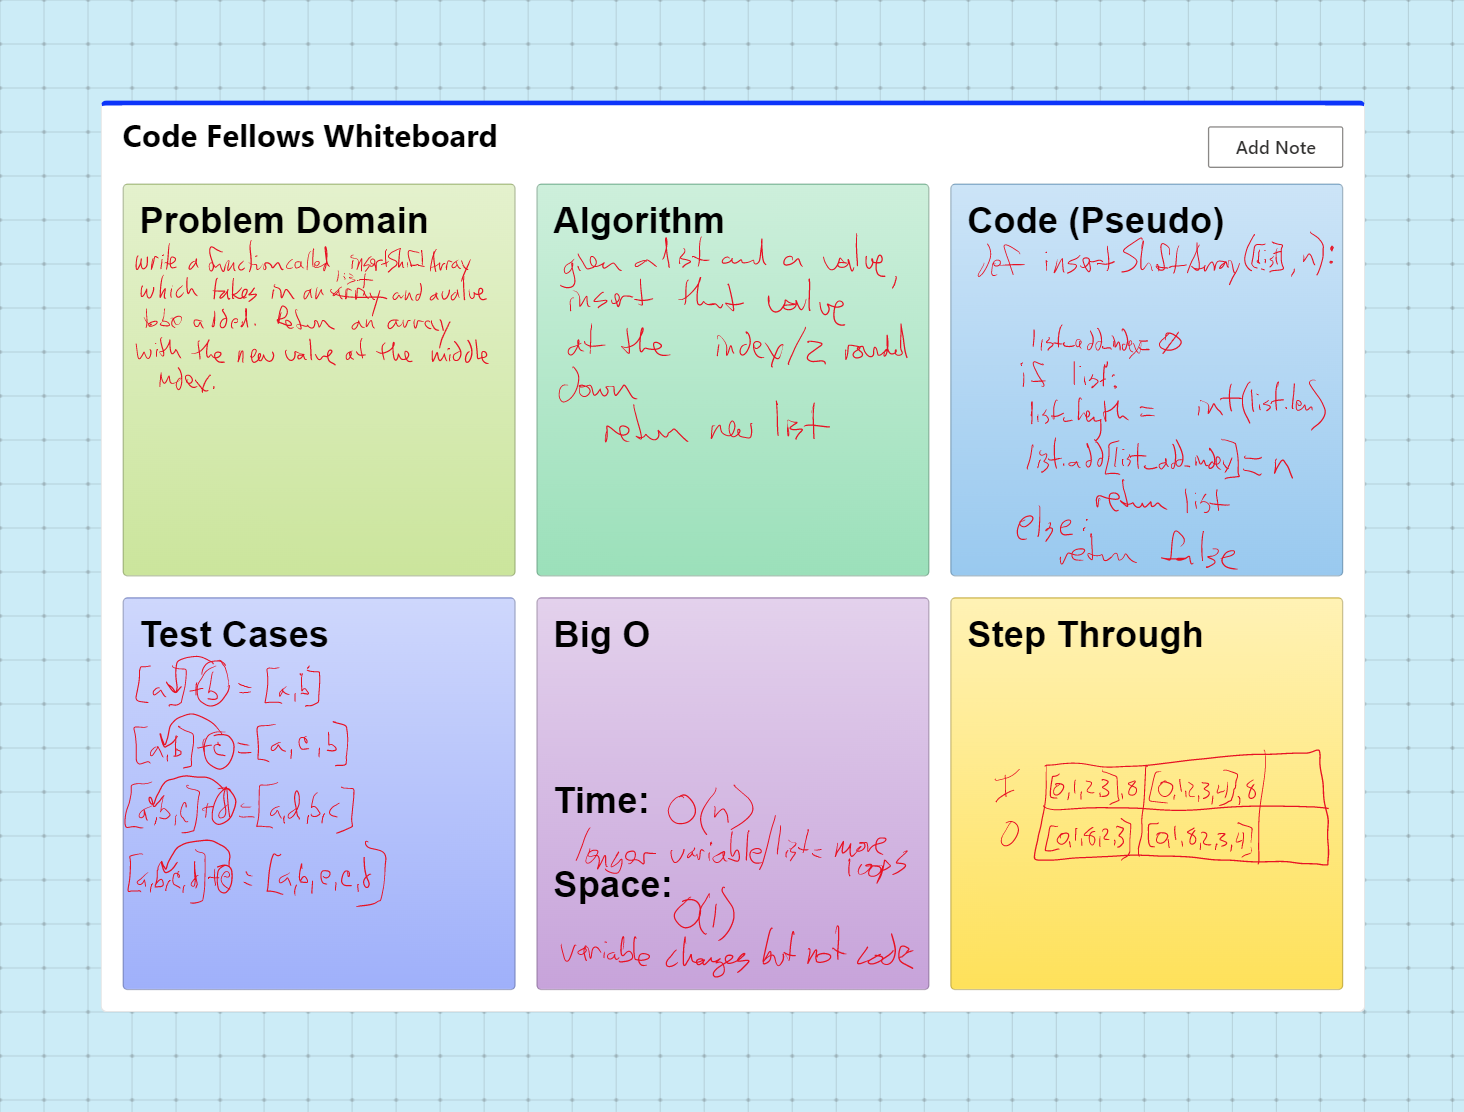 Code Fellows Whiteboard
Add Note
Problem Domain
write a function called insertShiftArray
list
which takes in an array and a value
to be added. Return an array
with the new value at the middle
index.
Algorithm
given a list and a value,
insert that value
at the index/2 rounded
down
return new list
Code (Pseudo)
def insertShiftArray([list], n):
list_add_index = 0
if list:
list_length = int(list.len)
list.add[list_add_index] = n
return list
else:
return false
Test Cases
[a]+b = [a,b]
[a,b]+c=[a,c,b]
[a,b,c]+d=[a,d,b,c]
[a,b,c,d]+e = [a,b,e,c,d]
Big O
Time: O(n)
longer variable/list = more
loops
Space:
O(1)
variable changes but not code
Step Through
I [0,1,2,3],8 [0,1,2,3,4],8
O [0,1,8,2,3] [0,1,8,2,3,4]